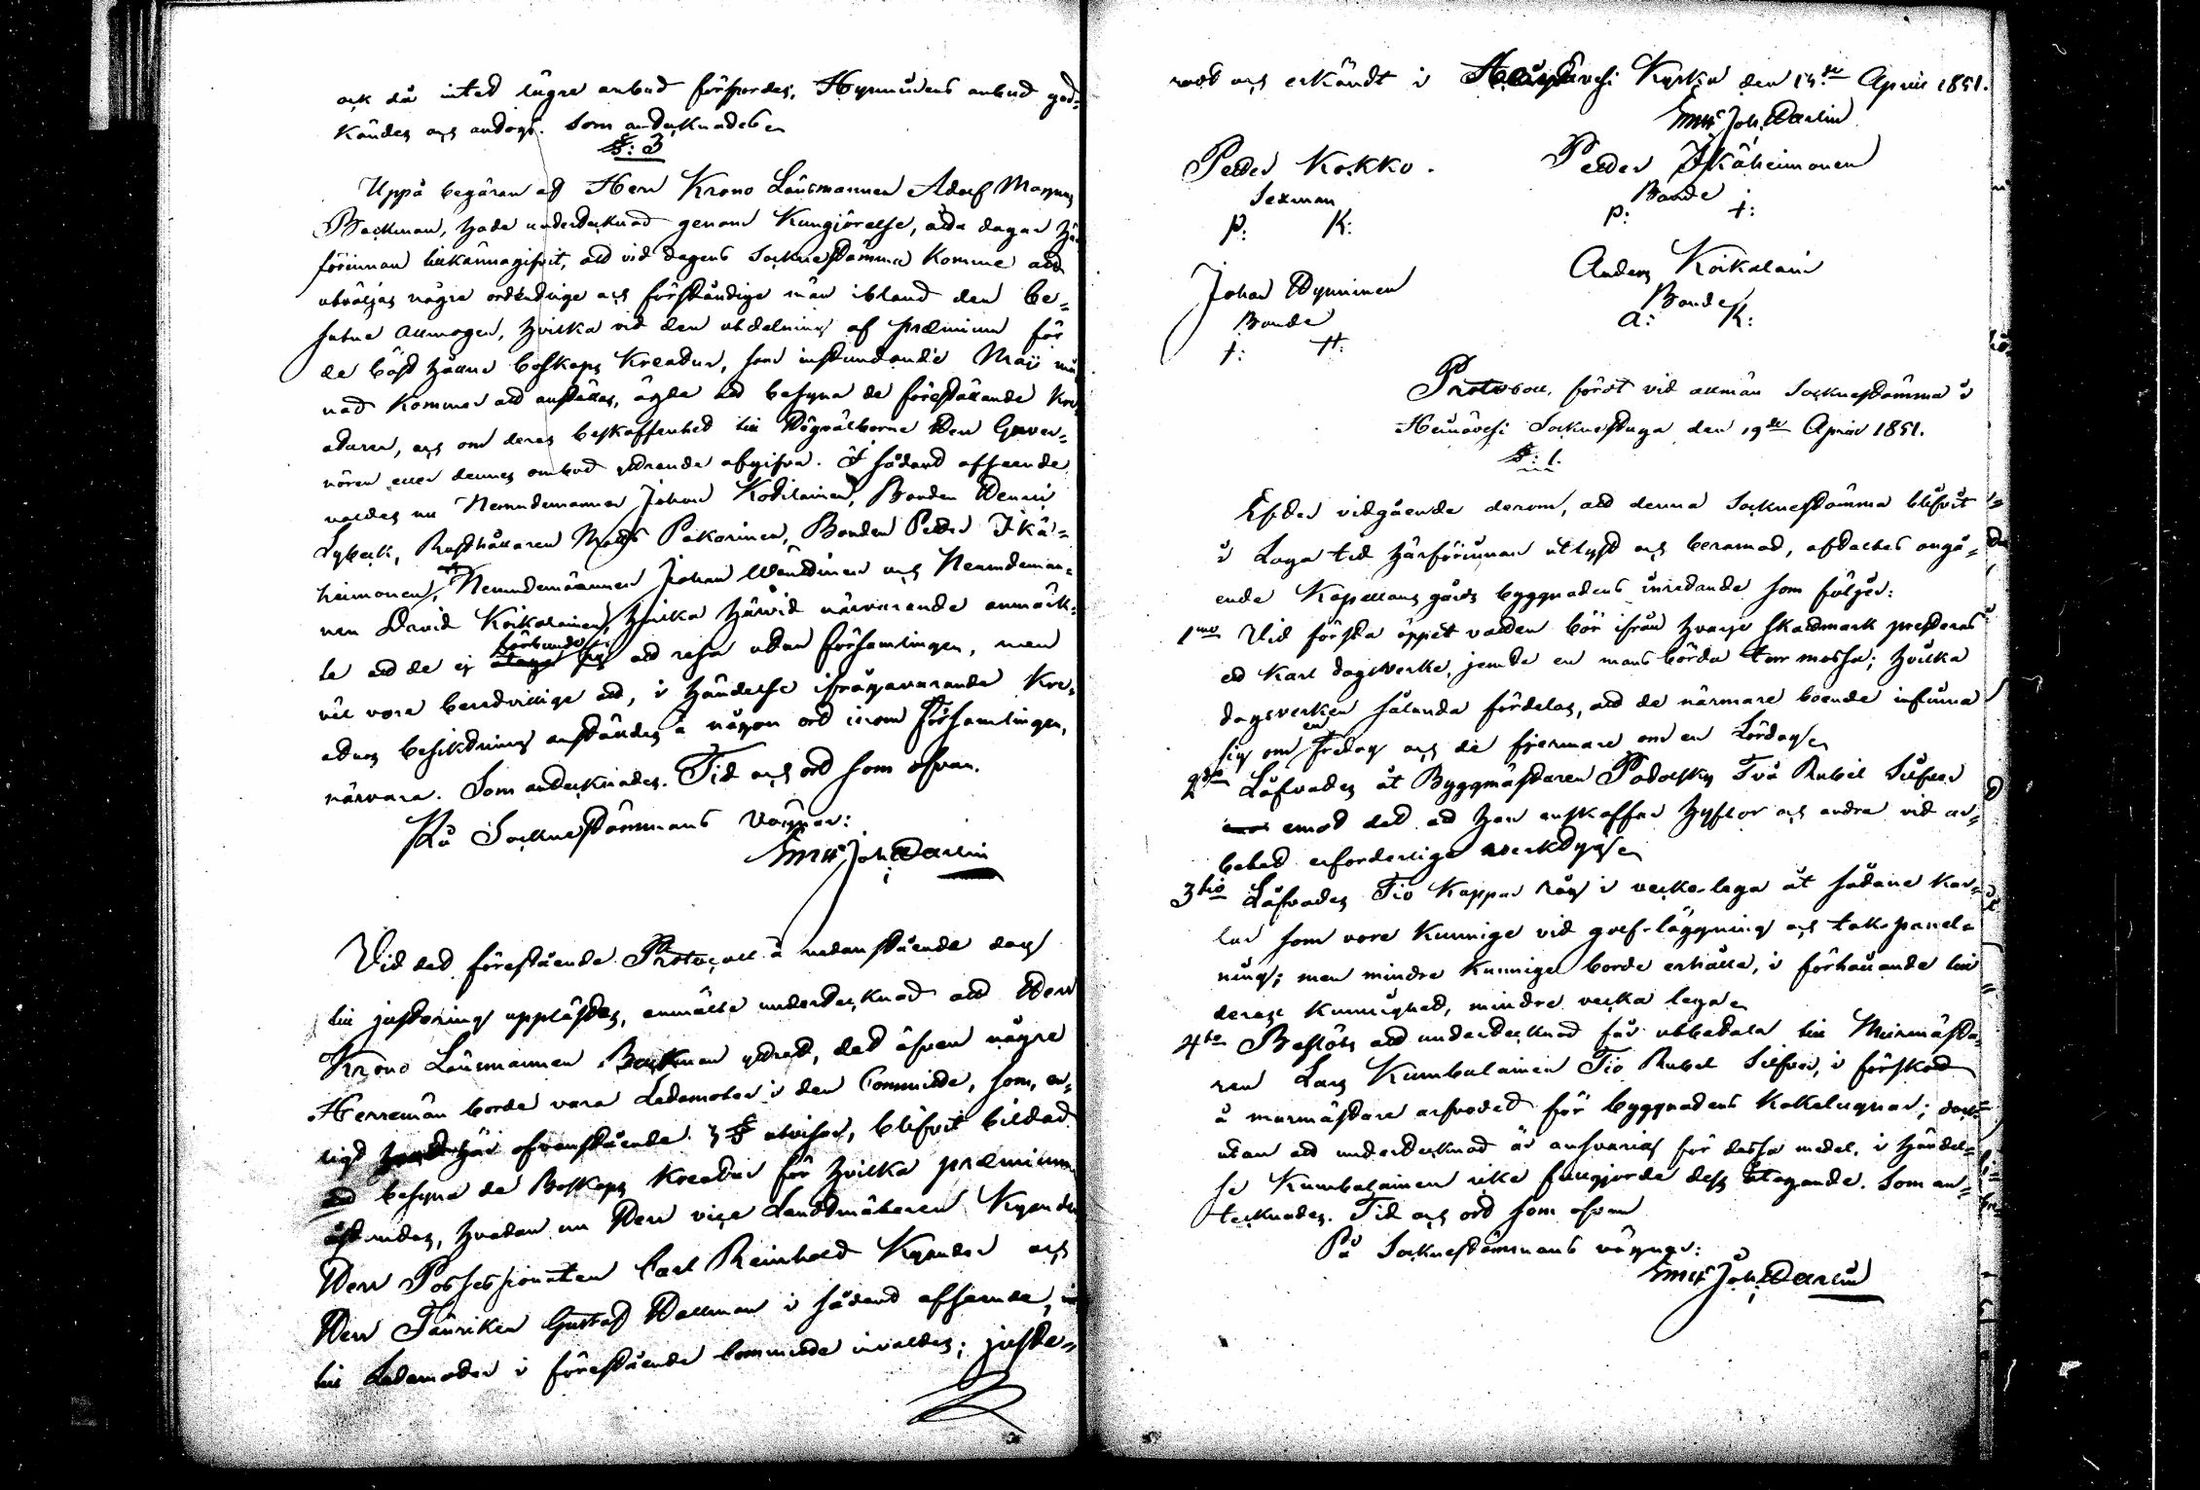 och då intet lägre anbud förspordes, Hynninens anbud god-
kändes och antogs. Som antecknades
§: 3
Uppå begäran af Herr Krono Länsmannen Adolf Magnus
Backman, hade undertecknad genom Kungjörelse, åtta dagar här
förinnan tillkännagifvit, att vid dagens Socknestämma komme att
utväljas några ordentlige och förståndige män ibland den be-
sutne allmogen, hvilka vid den utdelning af præmium för
de bäst hållne boskaps Kreatur, som instundande Maij må-
nad kommer att anställas, ägde att besyna de föreställande Kre-
aturen, och om deras beskaffenhet till Högvälborne Herr Guver-
nören eller dennes ombud yttrande afgifva. I sådant afseende
valdes nu Nämndemannen Johan Kotilainen, Bonden Henric
Lybeck, Rusthållaren Matts Pakarinen, Bonden Petter Ikä-
heimonen, Nämndemännen Johan Väntinen och Nämndeman-
nen David Koikalainen, hvilka härvid närvarande anmärk-
te att de ej förbunde sig att resa utom församlingen, men
väl vore beredvillige att, i händelse ifrågavarande Kre-
aturs besiktning anställdes å någon ort inom Församlingen,
närvara. Som antecknades. Tid och ort som ofvan.
På Sockne Stämmans vägnar:
Em: Joh: Dahlin
Vid det förestående Protocoll å nedanstående dag
till justering upplästes, anmälte undertecknad att Herr
Krono Länsmannen Backman yttrat, det äfven någre
Herremän borde vara Ledamoter i den Committé, som, en-
ligt här ofvanstående 3 § utvisar, blifvit bildad
att besyna de Boskaps Kreatur för hvilka præmium
åstundas, hvadan nu Herr vice Landtmätaren Kyander
Herr Possessionaten Carl Reinhold Kyander och
Herr Fänriken Gustaf Dallman i sådant afseende,
till Ledamoter i förestående Committé invaldes; juste-
radt och erkändt i Heinävesi Kyrka den 13de April 1851.
Em: Joh: Dahlin
Petter Kokko.
Sexman
P: K:
Petter Ikäheimonen
Bonde
P: I:
Johan Hynninen
Bonde
J: H:
Anders Koikalain
Bonde
A: K:
Protocoll, fördt vid allmän Socknestämma i
Heinävesi Socknestuga den 19de April 1851.
§: 1.
Efter vidgående derom, att denna Sockne stämma blifvit
i Laga tid härförinnan utlyst och beramad, afdaltes angå-
ende Kapellansgårds byggnadens inredande som följer:
1mo Vid första öppet vatten bör ifrån hvarje skattmark presteras
ett Karl dagsverke, jemte en mans börda torr mossa; hvilka
dagsverken sålunda fördelas, att de närmare boende infinna
sig om en Fredag och de fjermare om en Lördag
2do Låfvades åt Byggmästaren Podolsky Två Rubel Silfver
emot det att han anskaffar hyflor och andra vid ar-
betet erforderlige verktyg
3tio Låfvades Tio Kappar Råg i vecko lega åt sådane Kar-
lar som vore Kunnige vid golf-läggning och tak-panel-
ning; men mindre Kunnige borde erhålla, i förhållande till
deras Kunnighet, mindre vecka lega
4to Beslöts att undertecknad får utbetala till Murmästa-
ren Lars Kumbulainen Tio Rubel Silfver, i förskott
å murmästare arfvodet för byggnadens Kakelugnar; dock
utan att undertecknad är ansvarig för dessa medel, i händel-
se Kumbulainen icke fullgjorde dess åtagande. Som an-
tecknades. Tid och ort som ofvan
På Sockne stämmans vägnar:
Em: Joh: Dahlin